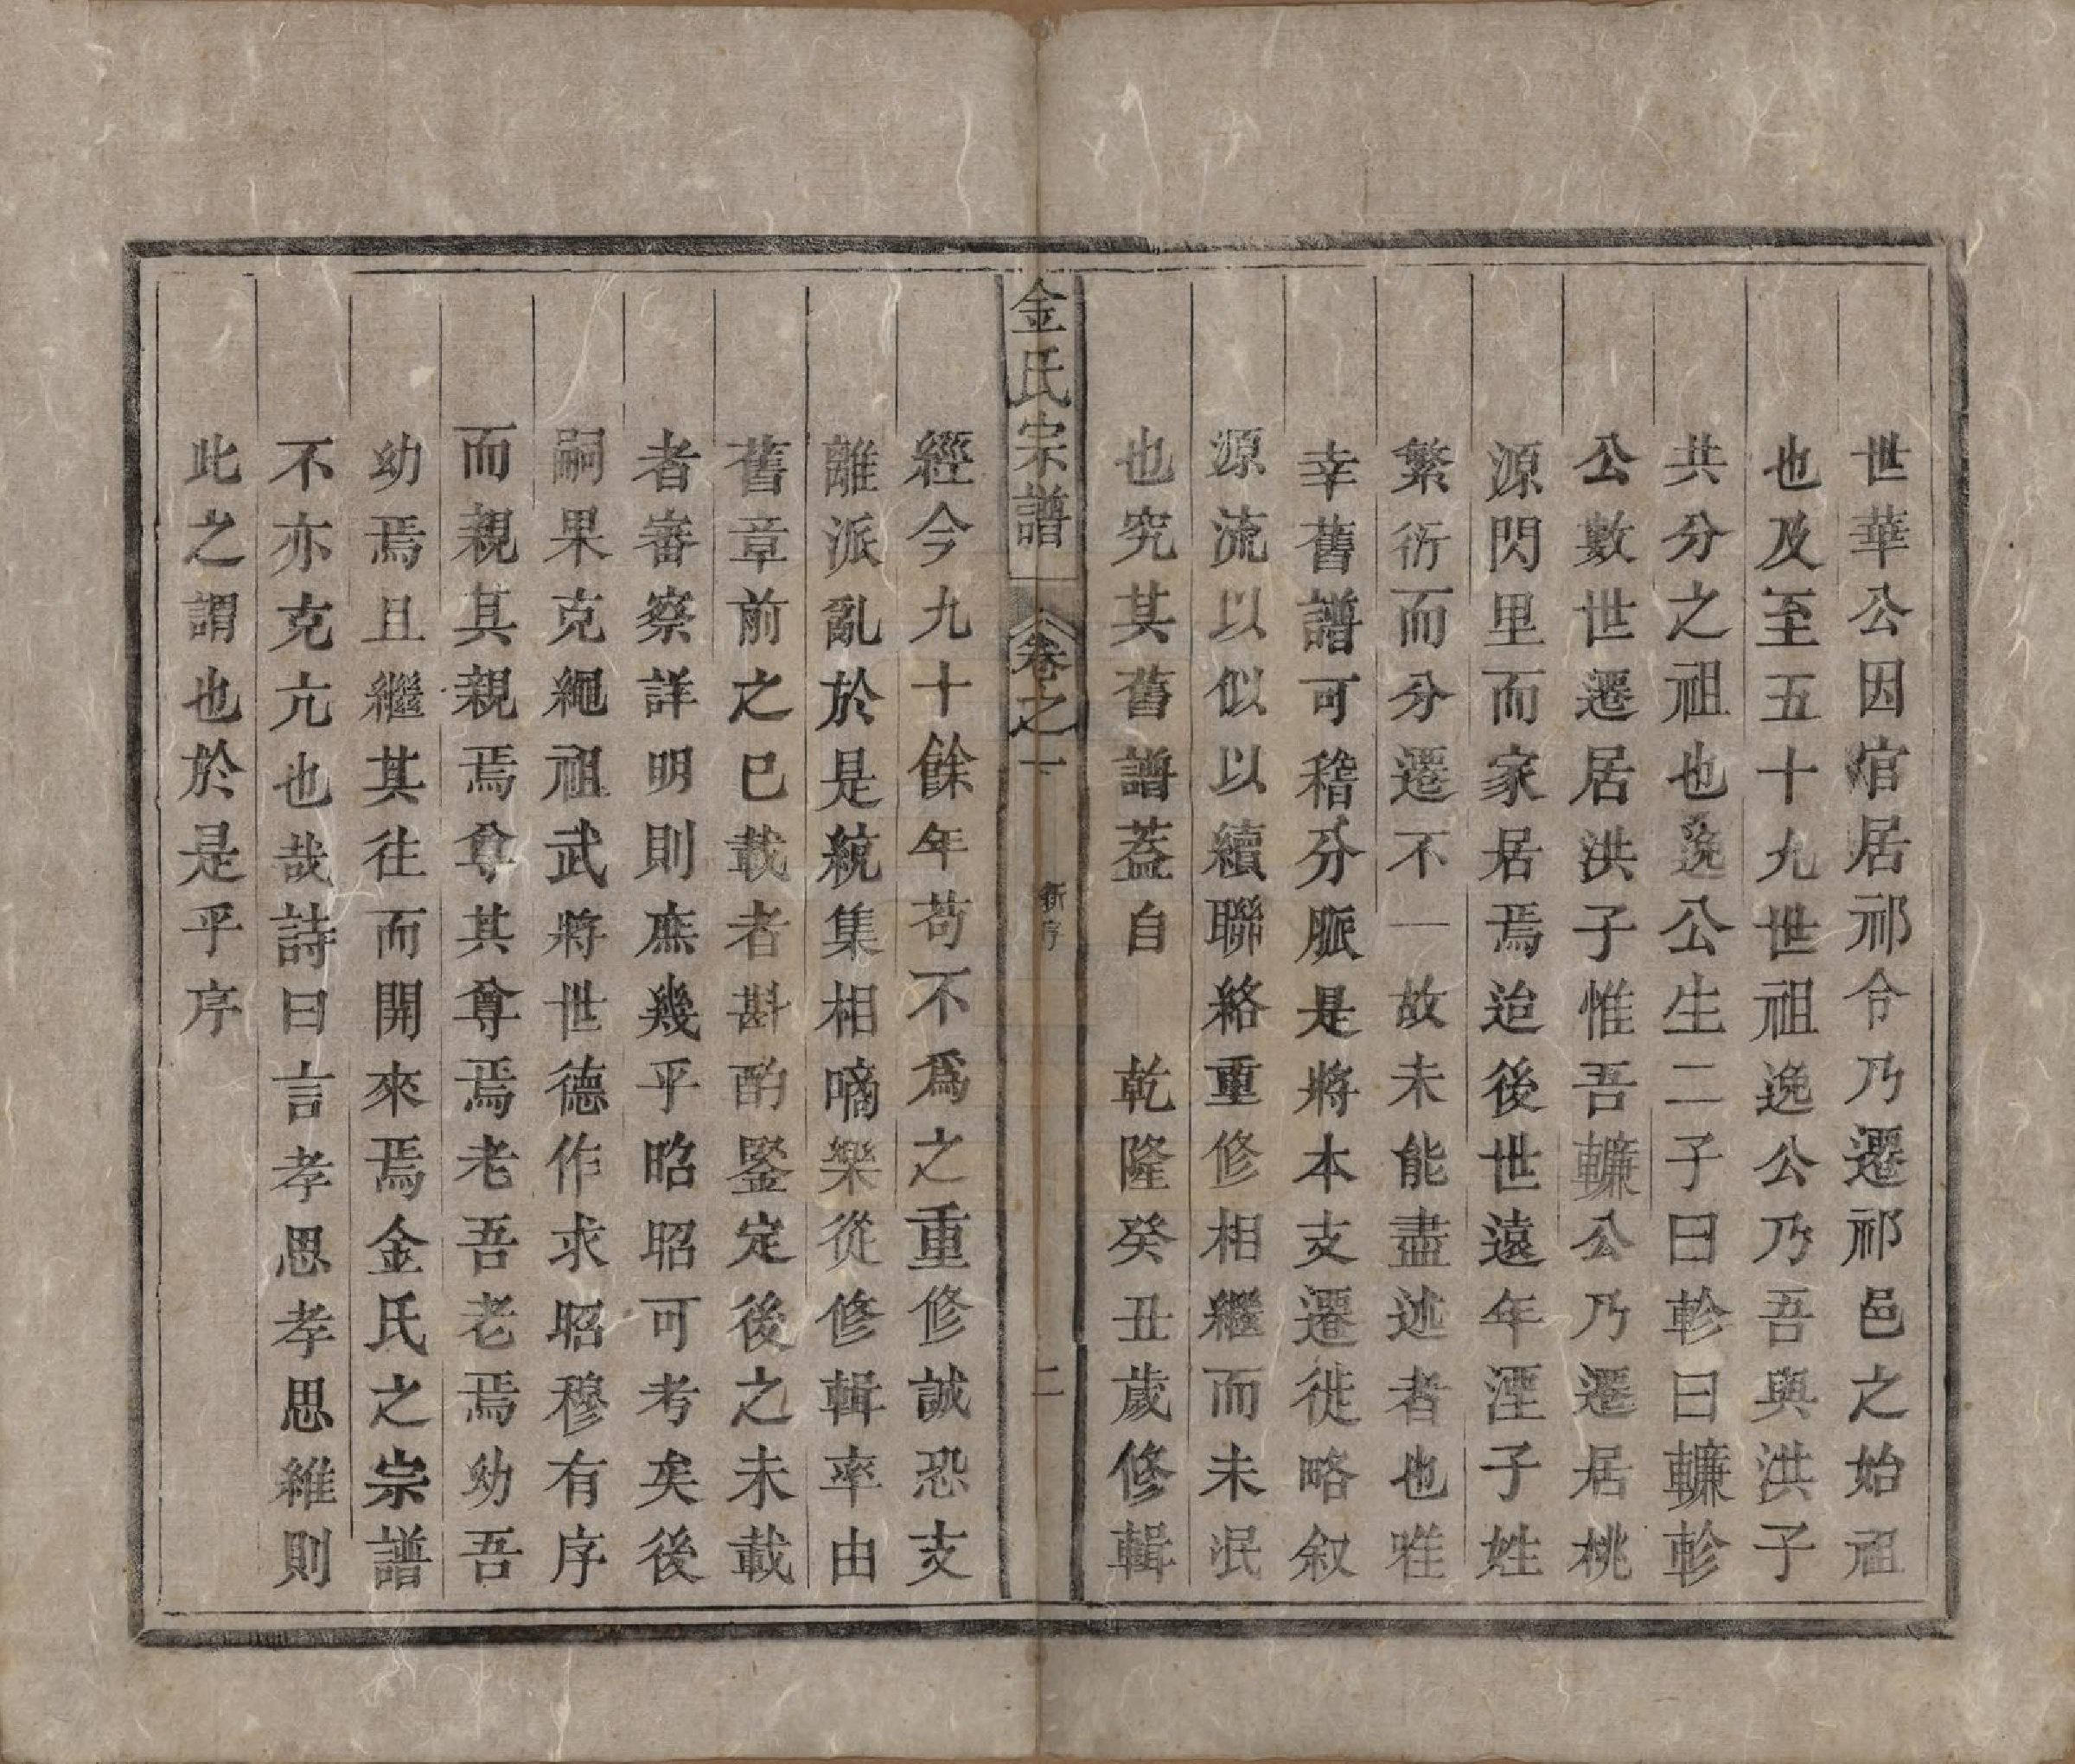 世華公因官居祁令乃遷祁邑之始祖
也及至五十九世祖逸公乃吾與洪子
共分之祖也逸公生二子曰軫曰轅軫
公數世遷居洪子惟吾轅公乃遷居桃
源閃里而家居焉迨後世遠年湮子姓
繁衍而分遷不一故未能盡述者也唯
幸舊譜可稽分脈是將本支遷徙略叙
源流以似以續聯絡重修相繼而未泯
也究其舊譜葢自　乾隆癸丑歲修輯
金氏宗譜
卷之一
新序
二
經今九十餘年苟不為之重修誠恐支
離派亂於是統集相嘀樂從修輯率由
舊章前之已載者斟酌鑒定後之未載
者審察詳明則庶幾乎昭昭可考矣後
嗣果克繩祖武將世德作求昭穆有序
而親其親焉尊其尊焉老吾老焉幼吾
幼焉且繼其往而開來焉金氏之宗譜
不亦克亢也哉詩曰言孝思孝思維則
此之謂也於是乎序